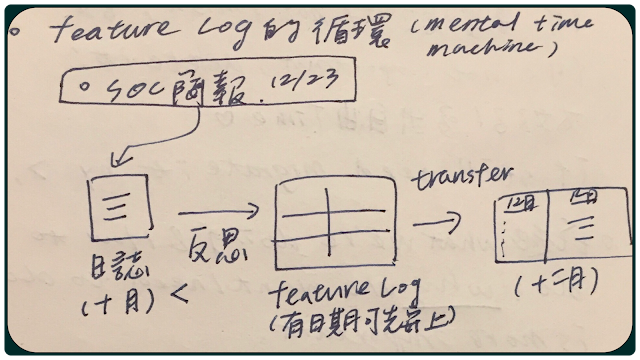 。feature Log的循環(mental time
machine)
。SOC簡報.12/23
日誌
(十月)<
反思
feature Log
(有日期可先寫上)
transfer
12月
(十二月)